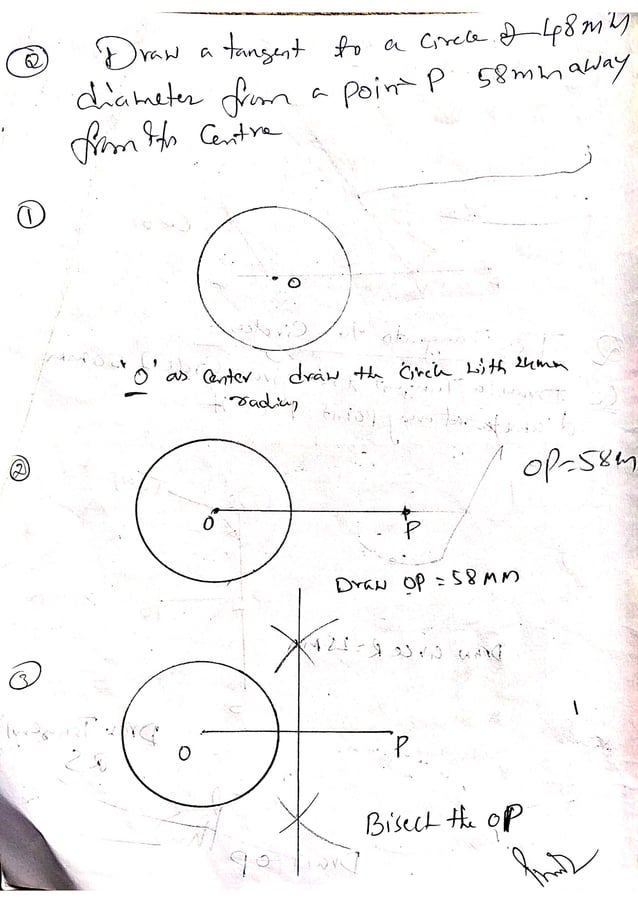 ② Draw a tangent to a circle of 48mm
diameter from a point P 58mm away
from the Centre
①
O
'O' as center draw the circle with 24mm
radius
②
OP=58m
O
P
Draw OP = 58MM
③
O
P
Bisect the OP